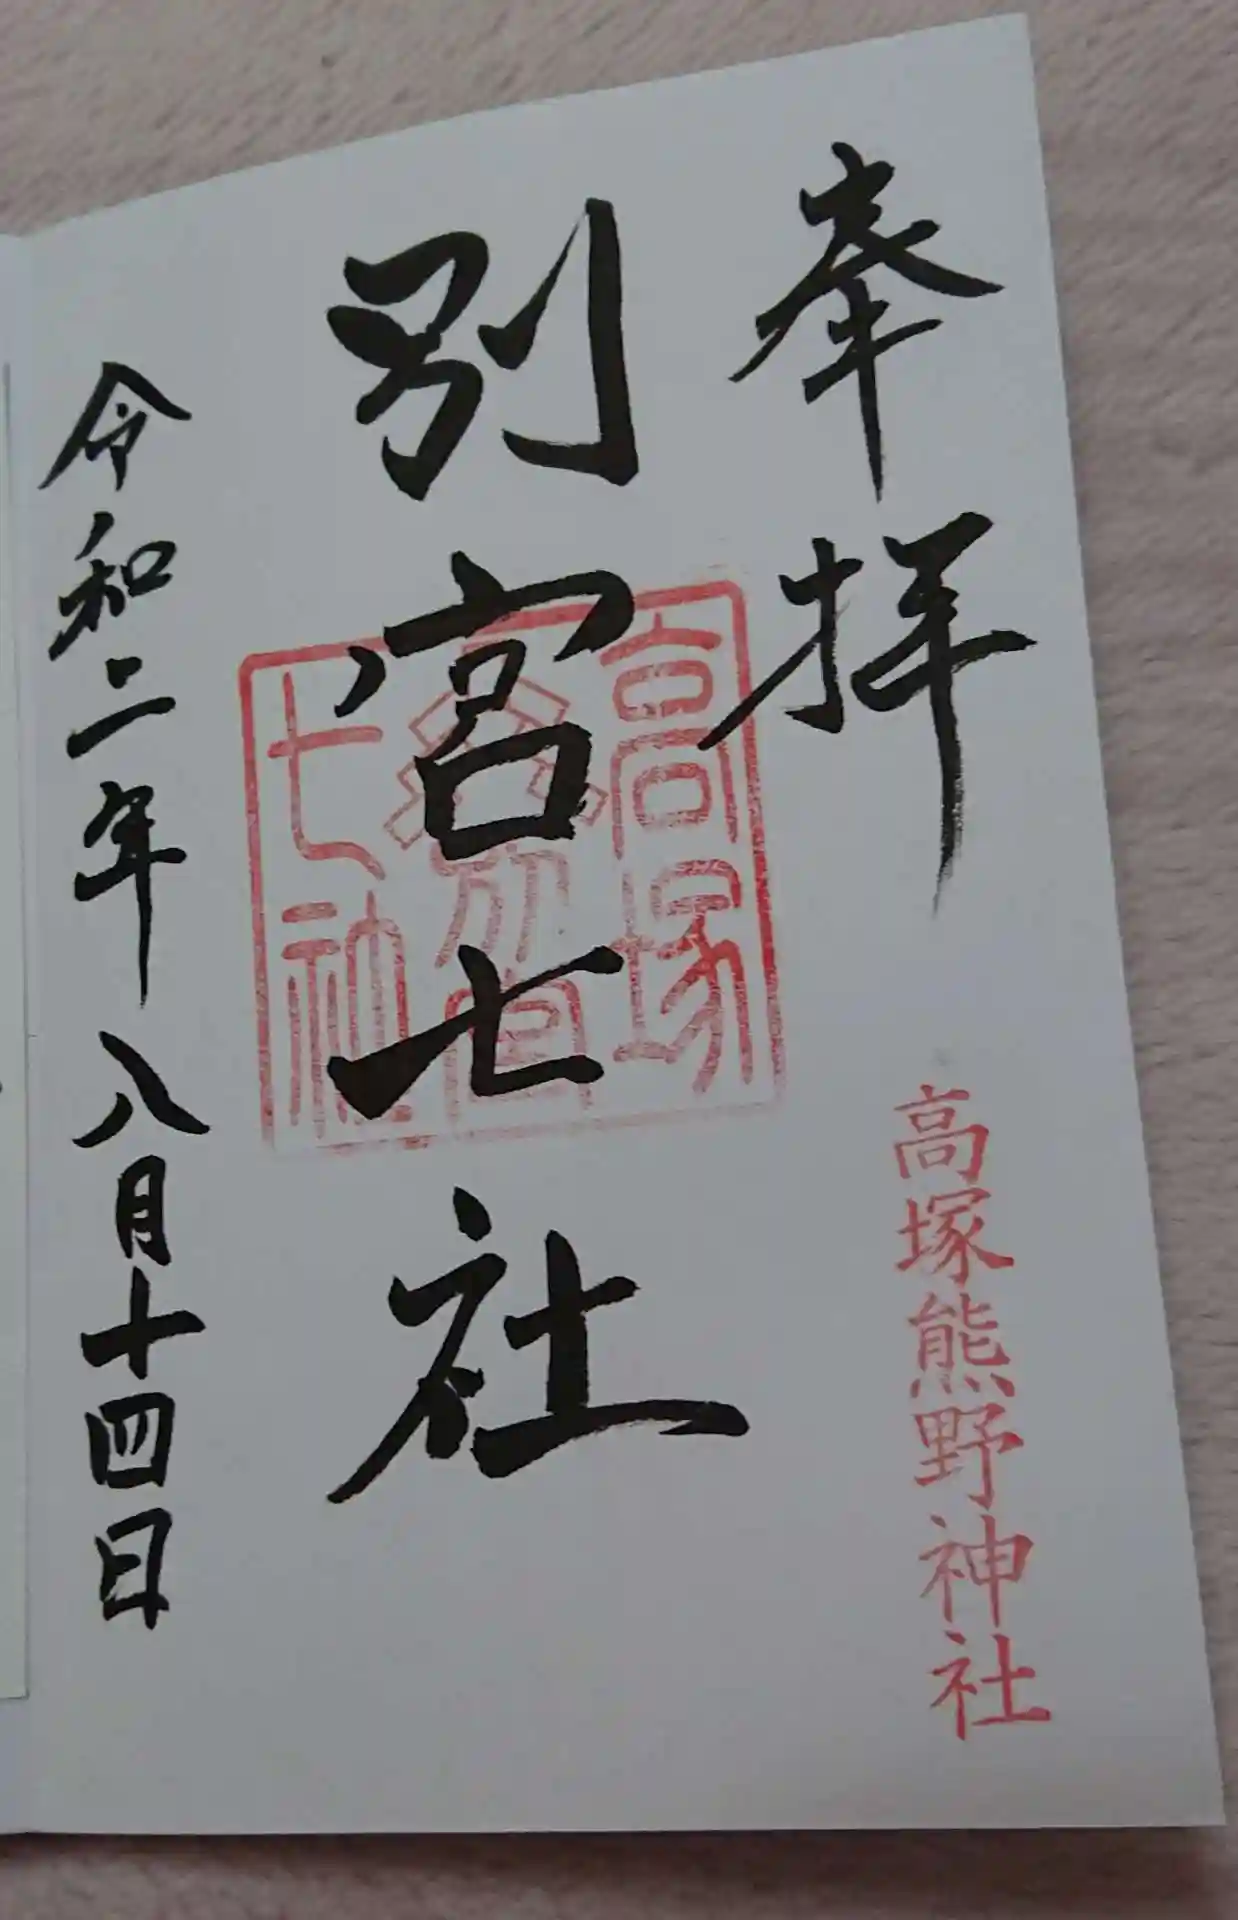 奉拝
高塚熊野神社
別宮七社
高塚
七社
令和二年八月十四日